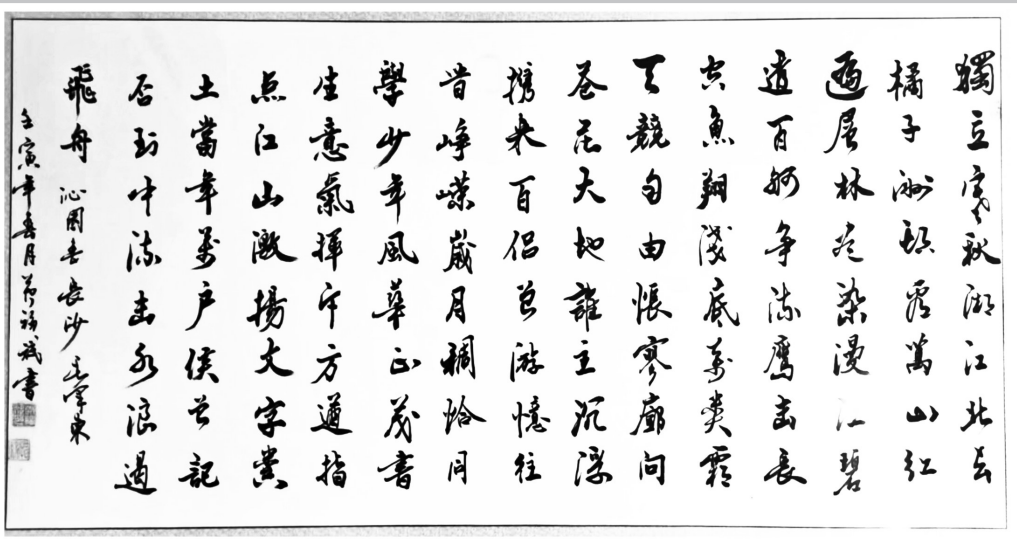 獨立寒秋湘江北去
橘子洲頭看萬山紅
遍層林尽染漫江碧
透百舸争流鷹击長
空魚翔淺底萬類霜
天競自由悵寥廓問
苍茫大地誰主沉浮
携来百侣曾游憶往
昔峥嵘歲月稠恰同
學少年風華正茂書
生意氣揮斥方遒指
点江山激揚文字糞
土當年萬户侯曾記
否到中流击水浪遏
飛舟 沁園春長沙 毛澤東
壬寅年春月 福 書